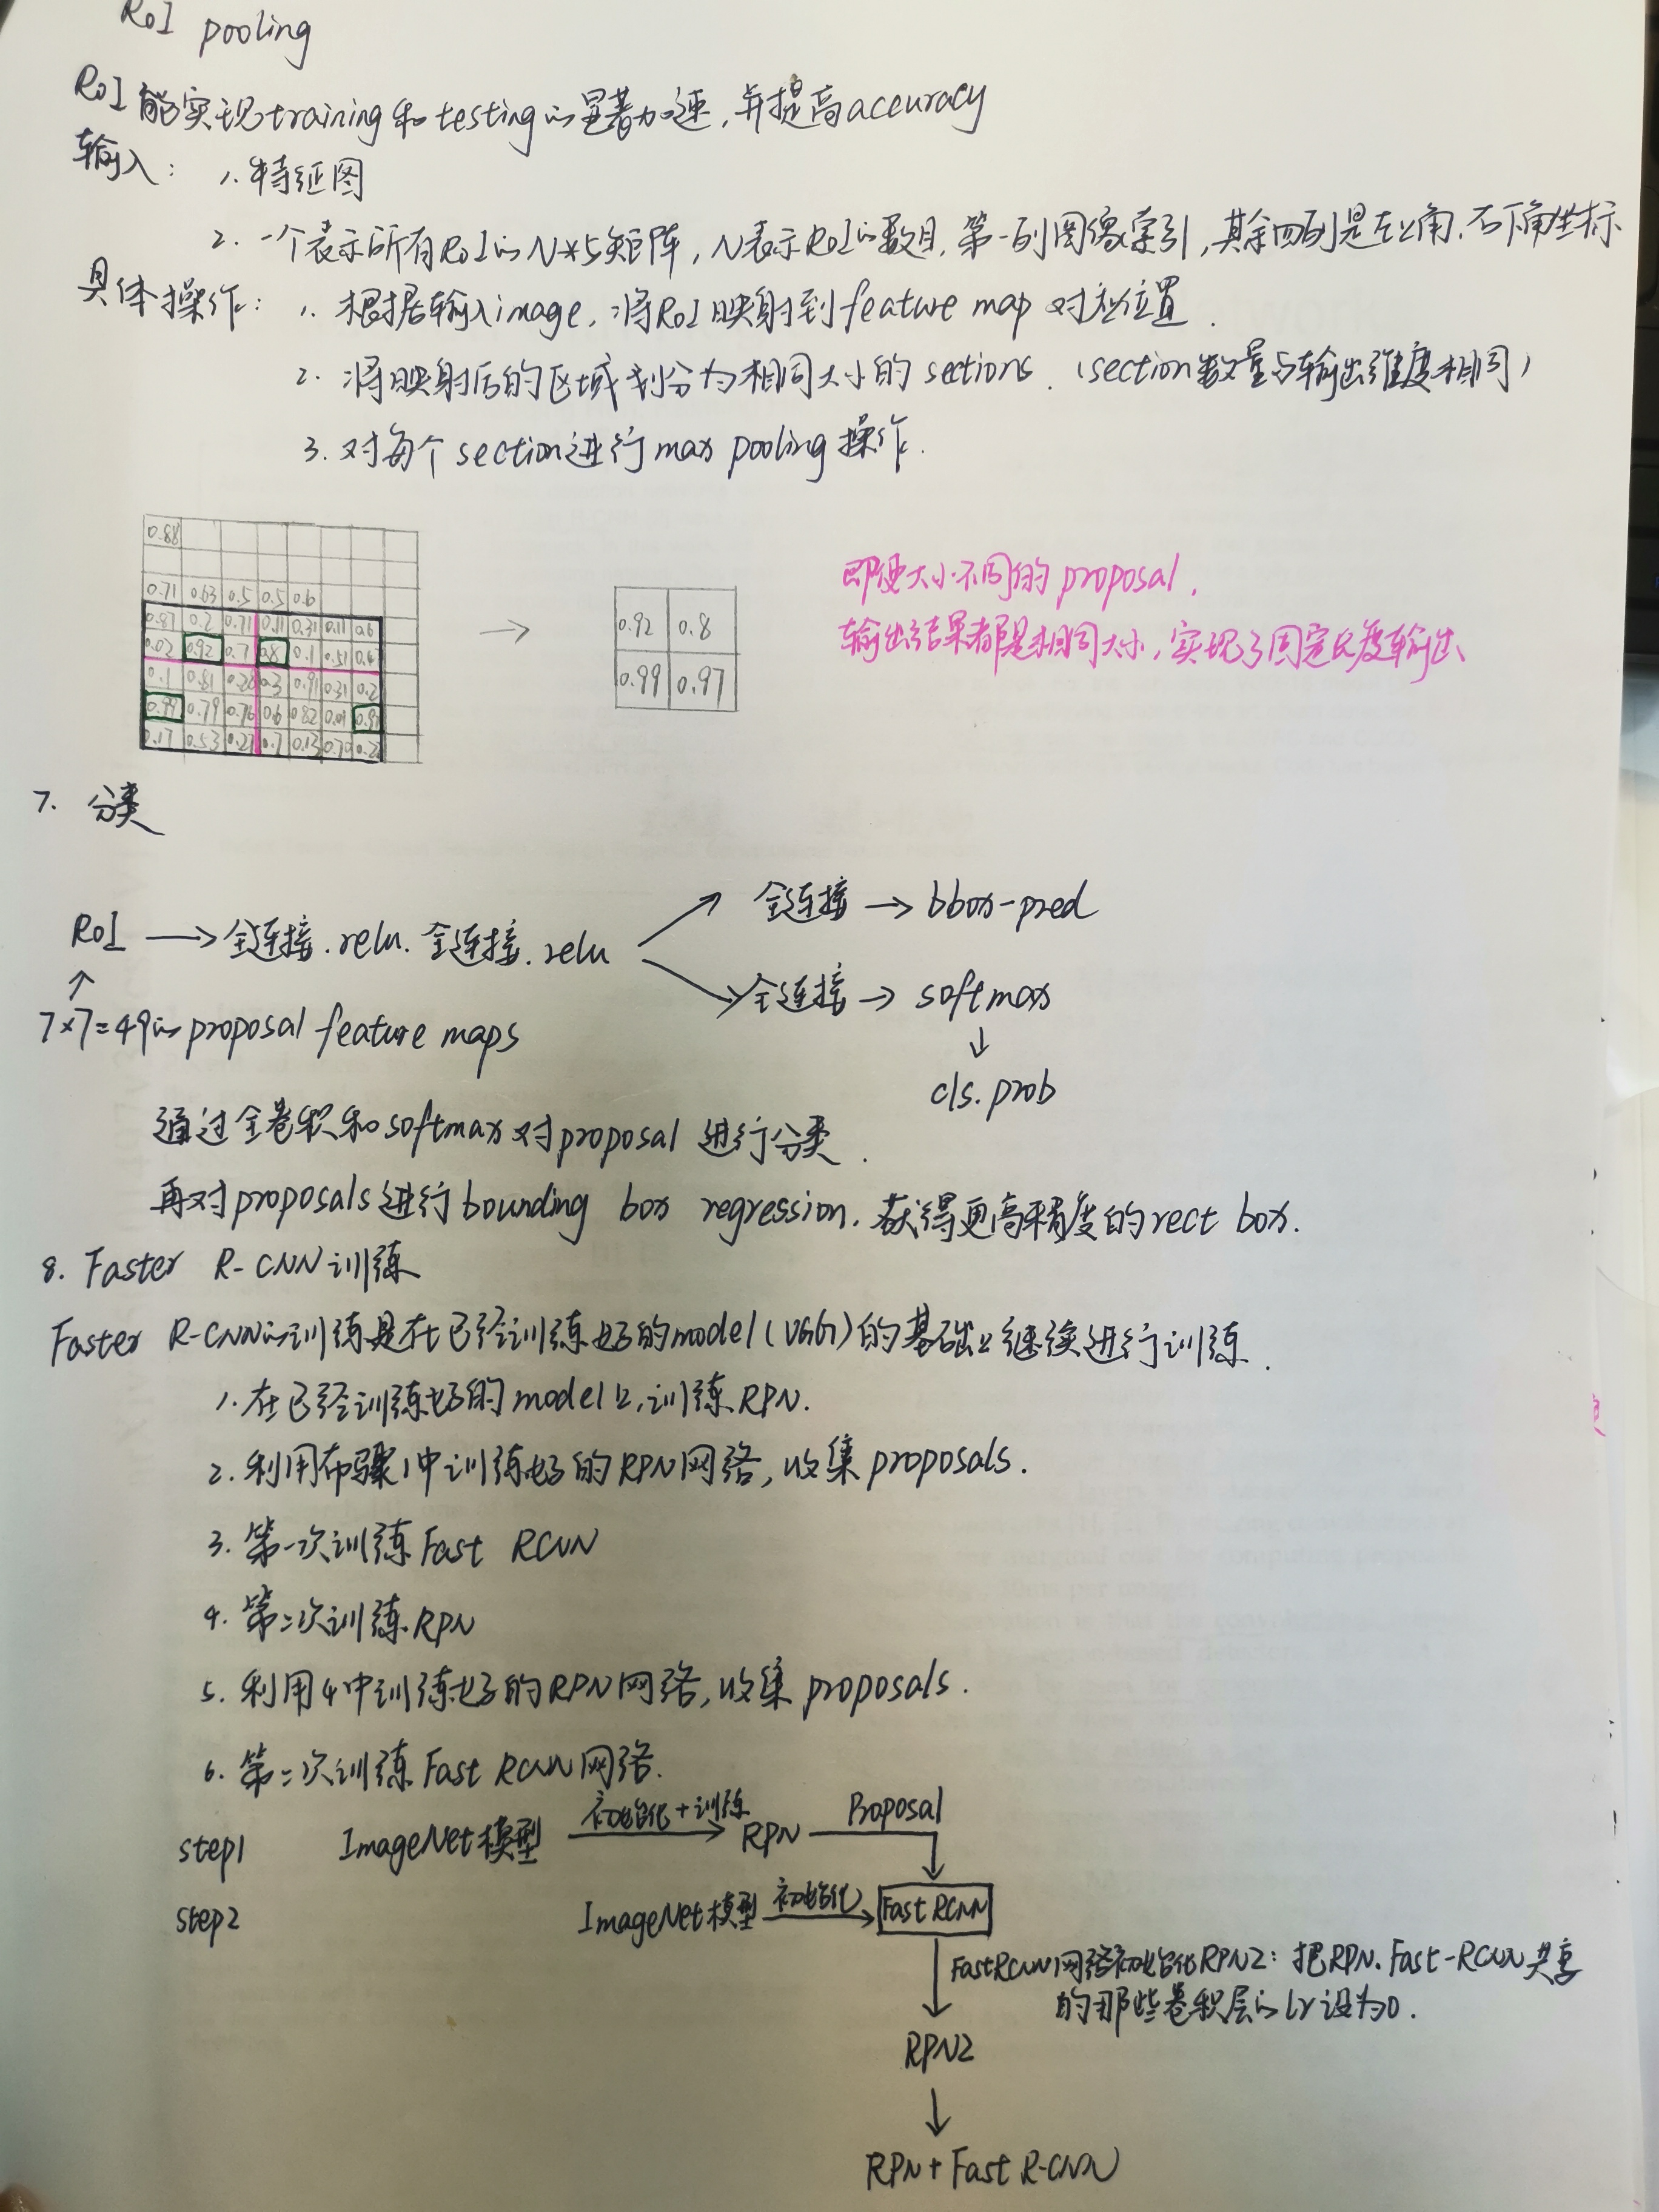 RoI pooling
RoI能实现training和testing的显著加速,并提高accuracy
输入: 1.特征图
2. 一个表示所有RoI的N*5矩阵,N表示RoI的数目.第一列图像索引,其余四列是左上角.右下角坐标
具体操作: 1. 根据输入image,将RoI映射到feature map对应位置.
2. 将映射后的区域划分为相同大小的sections.(section数量与输出维度相同)
3. 对每个section进行max pooling操作.
0.88
0.71 0.63 0.5 0.5 0.6
0.87 0.2 0.71 0.11 0.31 0.11 0.6
0.02 0.92 0.7 0.8 0.1 0.51 0.4
0.1 0.81 0.28 0.3 0.91 0.31 0.2
0.99 0.79 0.76 0.6 0.82 0.01 0.97
0.17 0.53 0.27 0.7 0.13 0.70 0.2
→
0.92 0.8
0.99 0.97
即使大小不同的proposal,
输出结果都是相同大小,实现了固定长度输出
7. 分类
RoI → 全连接.relu.全连接.relu
全连接 → bbox-pred
全连接 → softmax
↓
cls.prob
↑
7×7=49的proposal feature maps
通过全卷积和softmax对proposal进行分类.
再对proposals进行bounding box regression.获得更高精度的rect box.
8. Faster R-CNN训练
Faster R-CNN的训练是在已经训练好的model(VGG)的基础上继续进行训练.
1.在已经训练好的model上,训练RPN.
2.利用布骤1中训练好的RPN网络,收集proposals.
3.第一次训练Fast RCNN
4.第二次训练RPN
5.利用4中训练好的RPN网络,收集proposals.
6.第二次训练Fast RCNN网络.
step1 ImageNet模型 初始化+训练 → RPN Proposal
step2 ImageNet模型 初始化 → Fast RCNN
FastRCNN网络初始化RPN2: 把RPN.Fast-RCNN共享
的那些卷积层的lr设为0.
RPN2
↓
RPN+Fast R-CNN